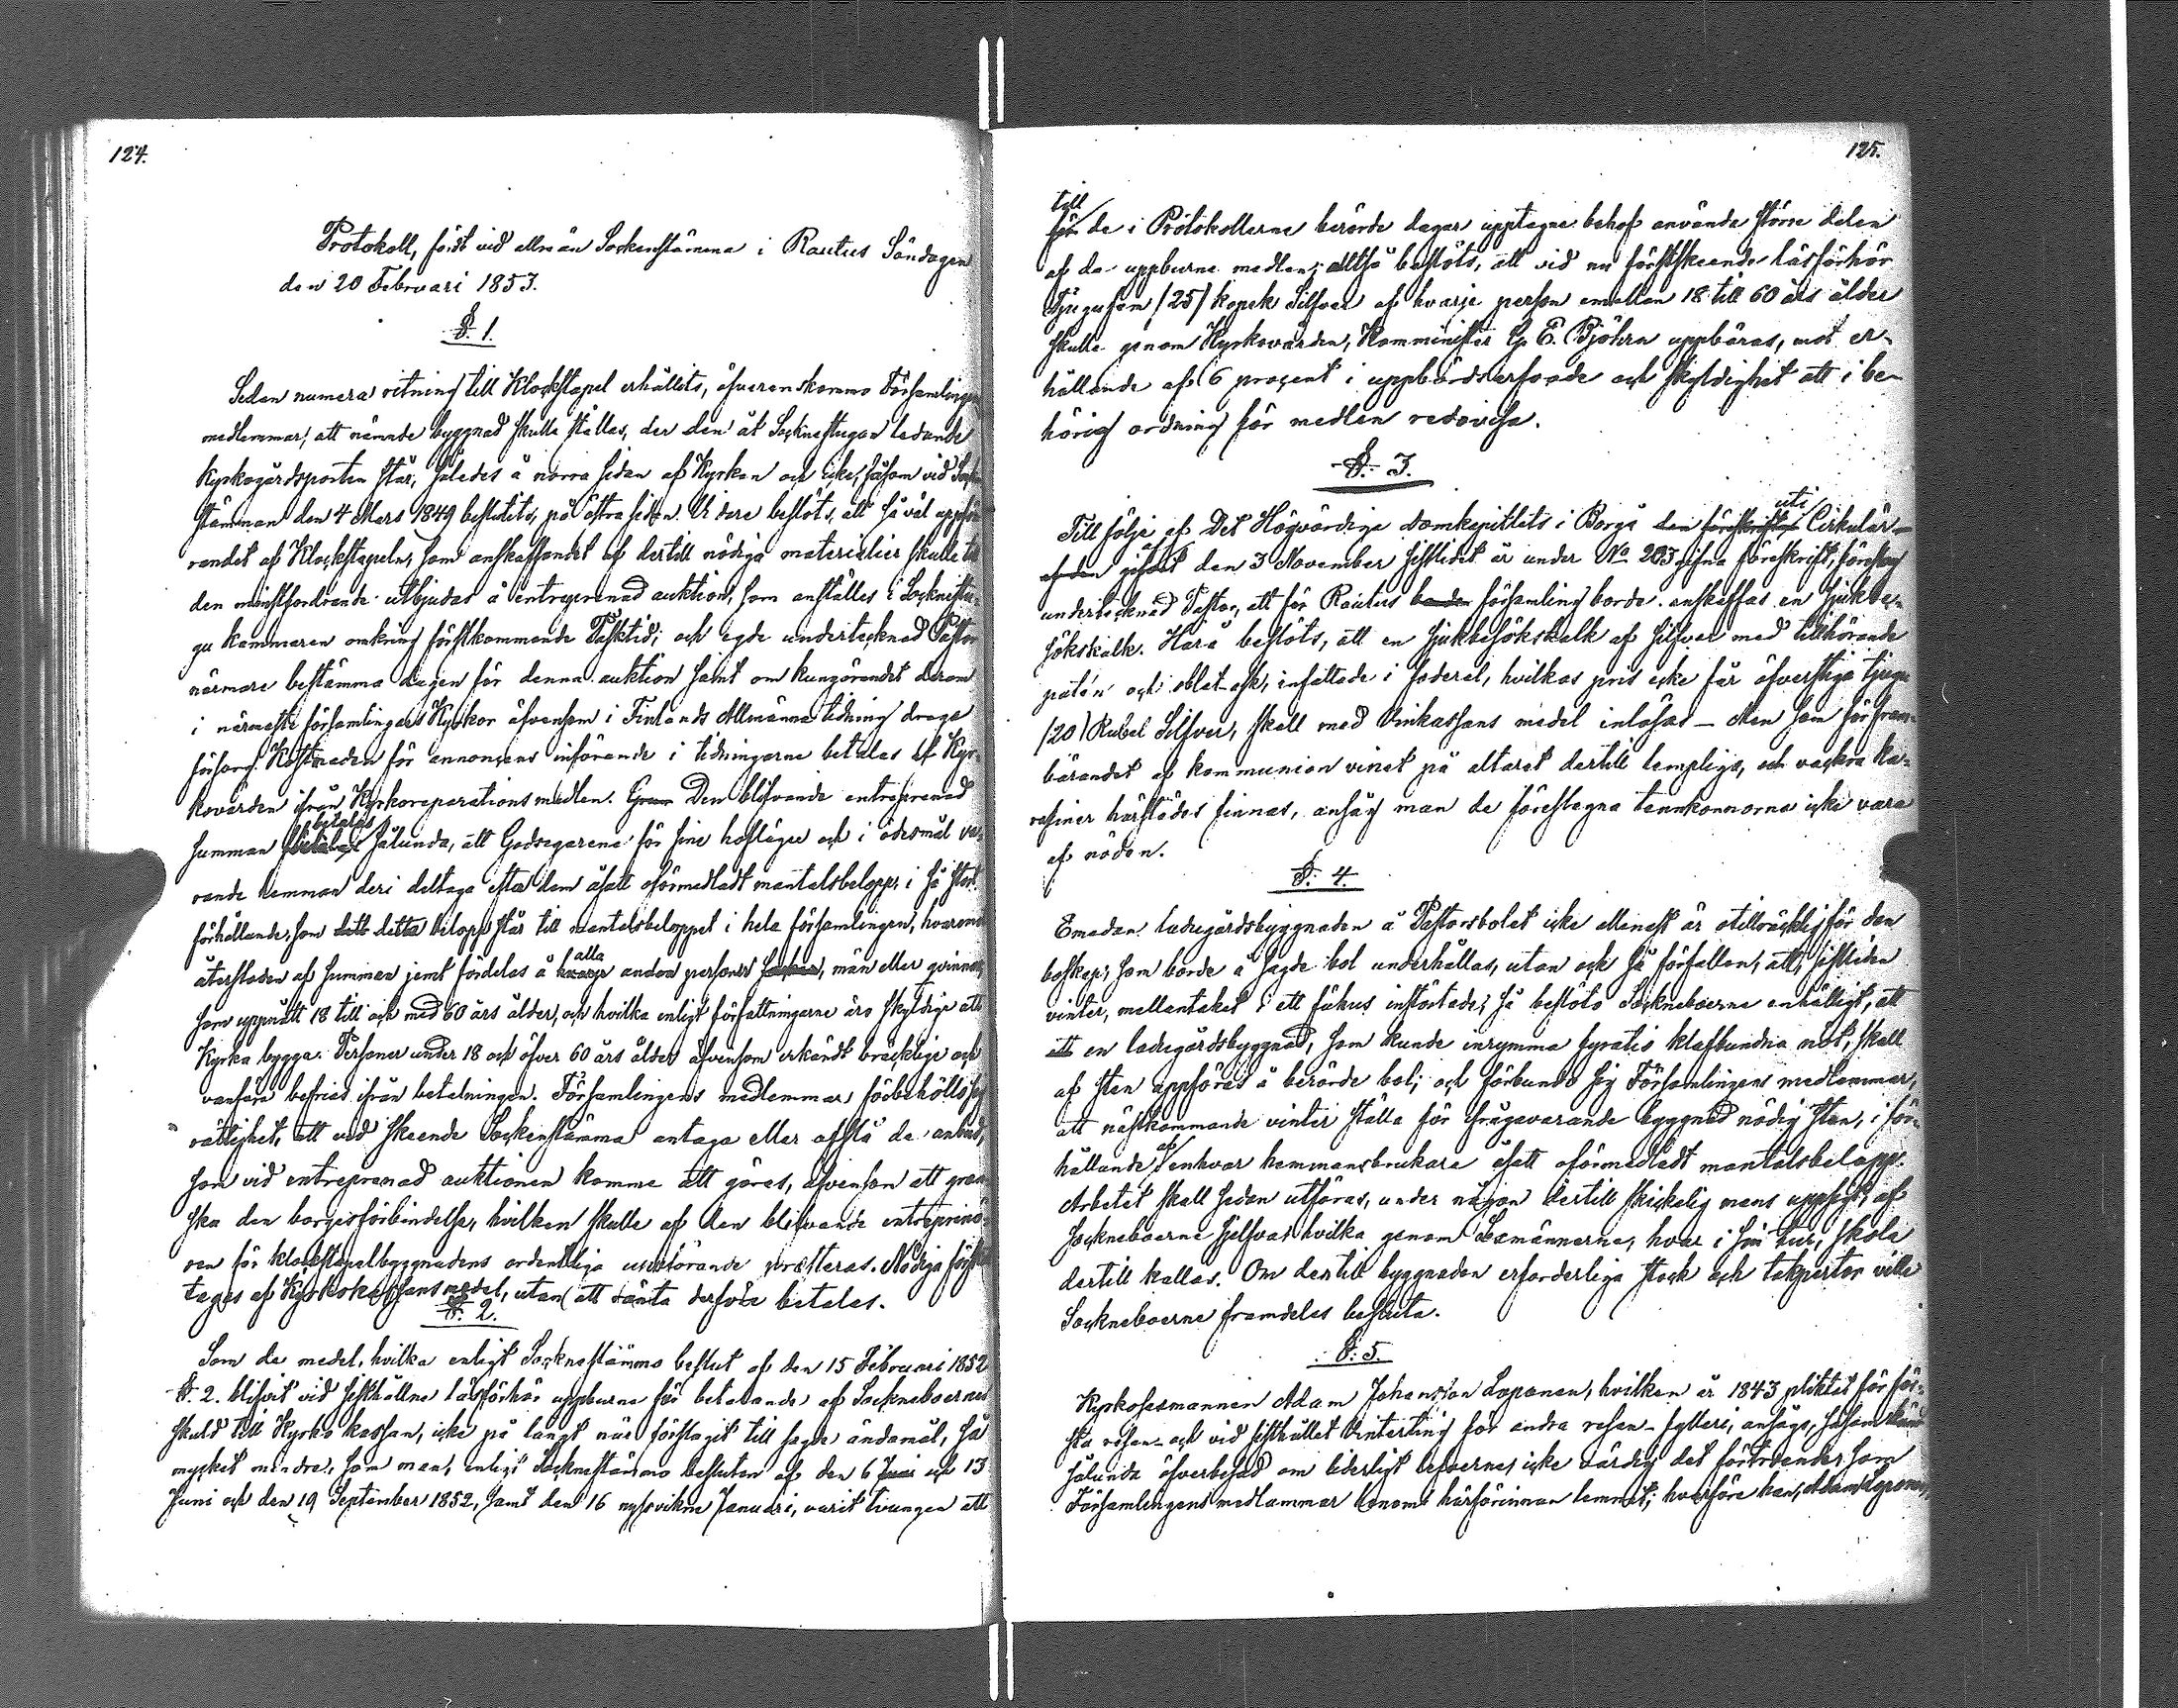 124.
Protokoll, fördt vid allmän Sockenstämma i Rautus Söndagen
den 20 Februari 1853.
§. 1.
Sedan numera ritning till Klockstapel erhållits, öfverenskommo Församlingens
medlemmar, att nämnde byggnad skulle ställas, der den åt Sockenstugan ledande
Kyrkogårdsporten står, således å norra sidan af Kyrkan och icke, såsom vid Socken
stämman den 4 Mars 1849 beslutits, på östra sidan. Vidare beslöts, att så väl uppfö-
randet af Klockstapeln, som anskaffandet af dertill nödiga materialier skulle till
den minstfordrande utbjudas å entreprenad auktion, som anställes i Socknestu-
gu kammaren omkring förstkommande Påsktid; och egde undertecknad Pastor
närmare bestämma dagen för denna auktion samt om kungörandet derom
i närmaste församlingars Kyrkor äfvensom i Finlands Allmänna tidning draga
försorg. Kostnaden för annonçens införande i tidningarne betalas af Kyr-
kovärden ifrån Kyrkoreparations medlen. Den blifvande entreprenad
summan betalas sålunda, att Godsegarena för sine hoflägor och i ödesmål va-
rande hemman deri deltaga efter dem åsatt oförmedladt mantalsbelopp, i så stort
förhållande, som detta belopp står till mantalsbeloppet i hela församlingen, hvaremot
återstoden af summan jemt fördelas å alla andra personer, män eller qvinnor,
som uppnått 18 till och med 60 års ålder, och hvilka enligt författningarne äro skyldige att
Kyrka bygga. Personer under 18 och öfver 60 års ålder äfvensom erkändt bräcklige och
vanföre befrias ifrån betalningen. Församlingens medlemmar förbehöllo sig
rättighet, att vid skeende Sockenstämma antaga eller afslå de anbud,
som vid entreprenad auktionen komme att göras, äfvensom att gran-
ska den borgesförbindelse, hvilken skulle af den blifvande entreprenö-
ren för klockstapelbyggnadens ordentliga utförande presteras. Nödiga förskott
tages af Kyrkokassans medel, utan att ränta derföre betalas.
§. 2.
Som de medel, hvilka enligt Socknestämmo beslut af den 15 Februari 1852
§. 2. blifvit vid sisthållne läsförhör uppburne för betalande af Sockneboernes
skuld till Kyrko kassan, icke på långt när förslagit till sagde ändamål, så
mycket mindre, som man, enligt Socknestämmo besluten af den 6 och 13
Juni och den 19 September 1852, samt den 16 nyssvikne Januari, varit tvungen att
125.
till
för de i Protokollerne berörde dagar upptagne behof använda större delen
af de uppburne medlen; alltså beslöts, att vid nu förestående läsförhör
Tjugufem (25) kopek Silfver af hvarje person emellan 18 till 60 års ålder
skulle genom Kyrkovärden, Komminister G. E. Björn uppbäras, mot er-
hållande af 6 procent i uppbördsarfvode och skyldighet att i be-
hörig ordning för medlen redovisa.
§. 3.
Till följe af Det Högvördiga Domkapitlets i Borgå den föreskrift uti Cirkulär
den 3 November sistlidet år under No 203 gifna föreskrift, föreslog
undertecknad Pastor, att för Rautus församling borde anskaffas en sjukbe-
sökskalk. Härå beslöts, att en sjukbesökskalk af silfver med tillhörande
patén och oblat-ask, infattade i foderal, hvilkas pris icke får öfverstiga tjugu
(20) Rubel Silfver, skall med Vinkassans medel inlösas – Men som för fram-
bärandet af kommunion vinet på altaret dertill lämpliga, och vackra ka-
raffiner härstädes finnas, ansåg man de föreslagna tennkannorna icke vara
af nöden.
§. 4.
Emedan ladugårdsbyggnaden å Pastorsbolet icke allenast är otillräcklig för den
boskap, som borde å sagde bol underhållas, utan ock så förfallen, att, sistliden
vinter, mellantaket i ett fähus instörtade; så beslöto Sockneboerne enhälligt, att
en ladugårdsbyggnad, som kunde inrymma fyratio klafbundna nöt, skall
af sten uppföras å berörde bol; och förbundo sig Församlingens medlemmar,
att nästkommande vinter ställa för ifrågavarande byggnad nödig sten, i för-
hållande af enhvar hemmansbrukare åsatt oförmedladt mantalsbelopp.
Arbetet skall sedan utföras, under någon dertill skickelig mans uppsigt, af
Sockneboerne sjelfva, hvilka genom Sexmännerne, hvar i sin tur, skola
dertill kallas. Om dertill byggnaden erforderliga stock och takpertor ville
Sockneboerne framdeles besluta.
§. 5.
Kyrkosexmannen Adam Johansson Loponen, hvilken år 1843 pliktat för för-
sta resan – och vid sisthållet Vinterting för andra resan – fylleri, ansågs, såsom
sålunda öfverbevisad om liderligt lefverne, icke värdig det förtroende, som
Församlingens medlemmar honom härförinnan lemnat; hvarföre han, Adam Loponen,